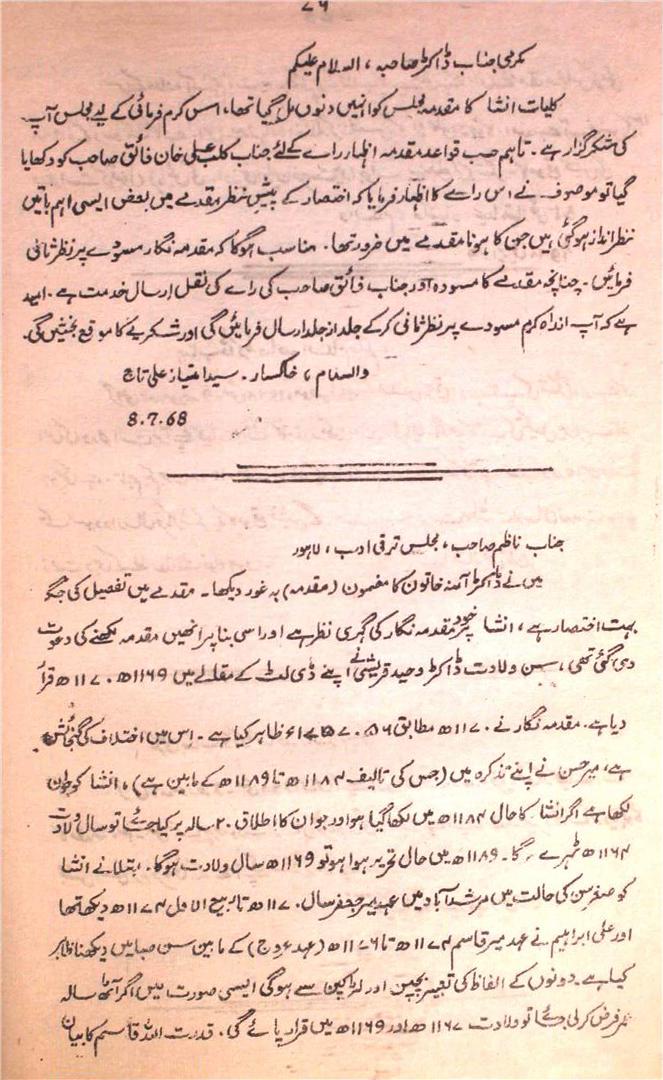 ۷۶
مکرمی جناب ڈاکٹر صاحبہ ، السلام علیکم
کلیات انشا کا مقدمہ مجلس کو انہیں دنوں مل گیا تھا، اس کرم فرمائی کے لیے مجلس آپ
کی شکر گزار ہے ۔ تاہم حسب قواعد مقدمہ اظہار راے کے لئے جناب کلب علی خان فائق صاحب کو دکھایا
گیا تو موصوف نے اس راے کا اظہار فرمایا کہ اختصار کے پیش نظر مقدمے میں بعض ایسی اہم باتیں
نظر انداز ہو گئی ہیں جن کا ہونا مقدمے میں ضرور تھا ۔ مناسب ہوگا کہ مقدمہ نگار مسودے پر نظر ثانی
فرمائیں ۔ چنانچہ مقدمے کا مسودہ اور جناب فائق صاحب کی راے کی نقل ارسال خدمت ہے ۔ امید
ہے کہ آپ از راہ کرم مسودے پر نظر ثانی کر کے جلد از جلد ارسال فرمائیں گی اور شکریے کا موقع بخشیں گی ۔
والسلام ، خاکسار ۔ سید امتیاز علی تاج
8.7.68
جناب ناظم صاحب ، مجلس ترقی ادب ، لاہور
میں نے ڈاکٹر آمنہ خاتون کا مضمون (مقدمہ) بہ غور دیکھا ۔ مقدمے میں تفصیل کی جگہ
بہت اختصار ہے ، انشا پر خود مقدمہ نگار کی گہری نظر ہے اور اسی بنا پر انھیں مقدمہ لکھنے کی دعوت
دی گئی تھی ، سن ولادت ڈاکٹر وحید قریشی نے اپنے ڈی لٹ کے مقالے میں ۱۱۶۹ھ ۔ ۱۱۷۰ھ قرار
دیا ہے ۔ مقدمہ نگار نے ۱۱۷۰ھ مطابق ۵۶ ۔ ۱۷۵۷ء ظاہر کیا ہے ۔ اس میں اختلاف کی گنجائش
ہے ، میر حسن نے اپنے تذکرہ میں (جس کی تالیف ۱۱۸۴ھ تا ۱۱۸۹ھ کے مابین ہے) ، انشا کو جوان
لکھا ہے اگر انشا کا حال ۱۱۸۴ھ میں لکھا گیا ہو اور جوان کا اطلاق ۲۰ سالہ پر کیا جائے تو سال ولادت
۱۱۶۴ھ ٹھہرے گا ۔ ۱۱۸۹ھ میں حال تحریر ہوا ہو تو ۱۱۶۹ھ سال ولادت ہوگا ۔ مبتلا نے انشا
کو صغر سن کی حالت میں مرشد آباد میں عہد میر جعفر سال ۱۱۷۰ھ تا ربیع الاول ۱۱۷۴ھ دیکھا تھا
اور علی ابراہیم نے عہد میر قاسم ۱۱۷۴ھ تا ۱۱۷۶ھ (عہد عروج) کے مابین سن صبا میں دیکھنا ظاہر
کیا ہے ۔ دونوں کے الفاظ کی تعبیر بچپن اور لڑکپن سے ہوگی ایسی صورت میں اگر آٹھ سالہ
عمر فرض کر لی جائے تو ولادت ۱۱۶۷ھ اور ۱۱۶۹ھ میں قرار پائے گی ۔ قدرت اللہ قاسم کا بیان